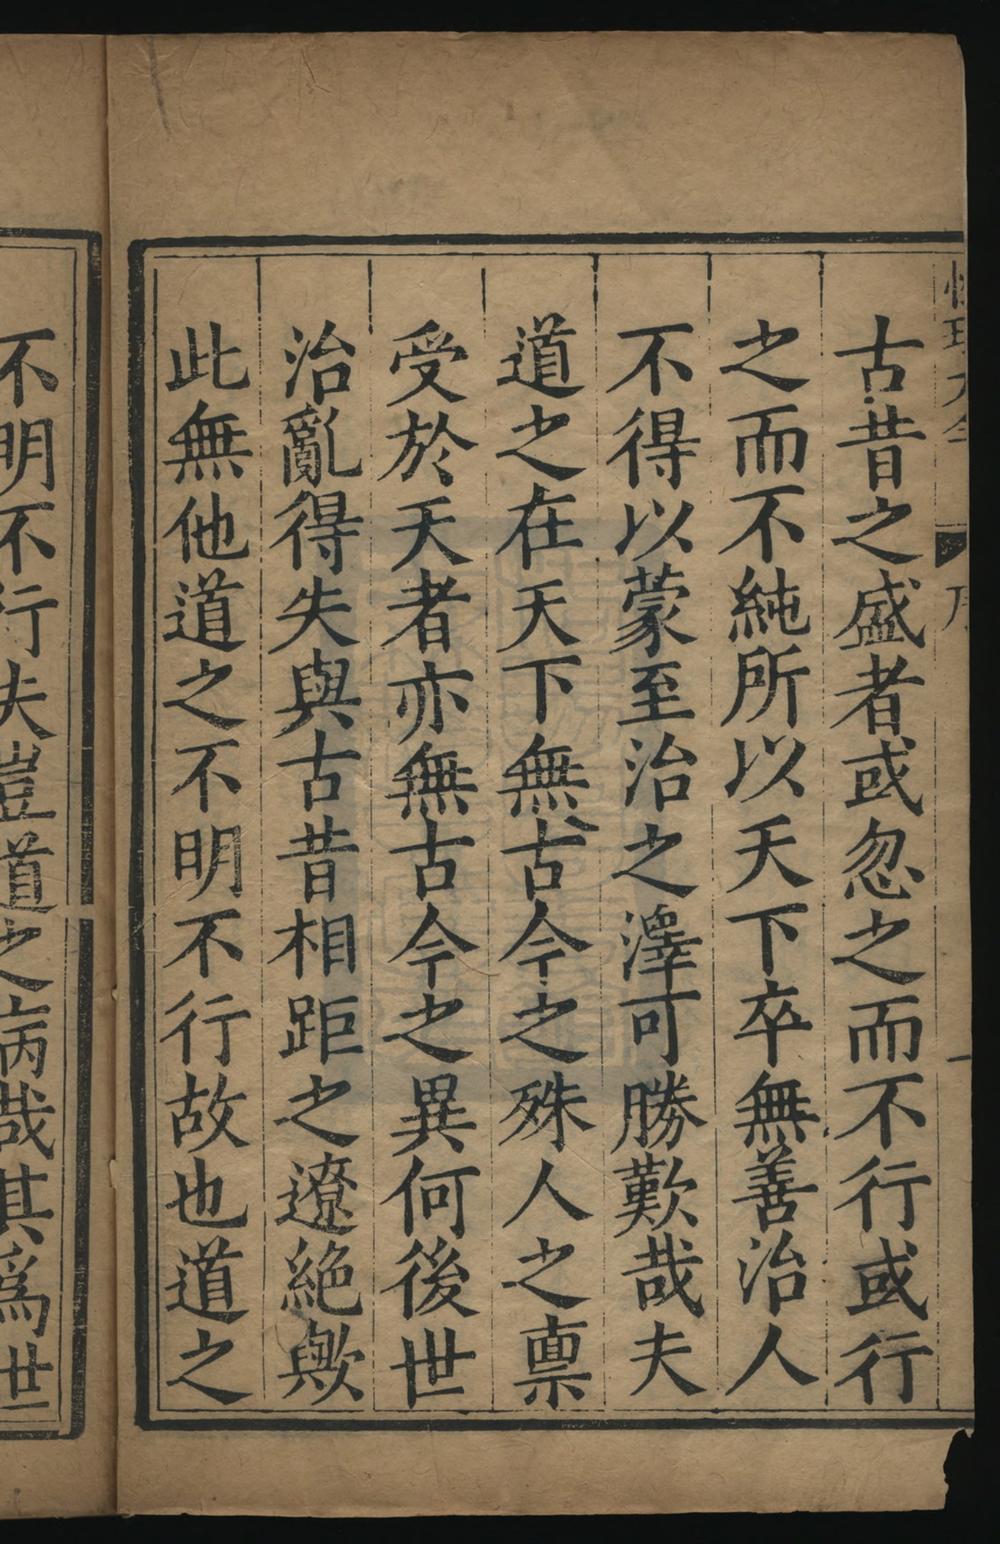 古昔之盛者或忽之而不行或行
之而不純所以天下卒無善治人
不得以蒙至治之澤可勝歎哉夫
道之在天下無古今之殊人之禀
受於天者亦無古今之異何後世
治亂得失與古昔相距之遼絕歟
此無他道之不明不行故也道之
不明不行夫豈道之病哉其爲世